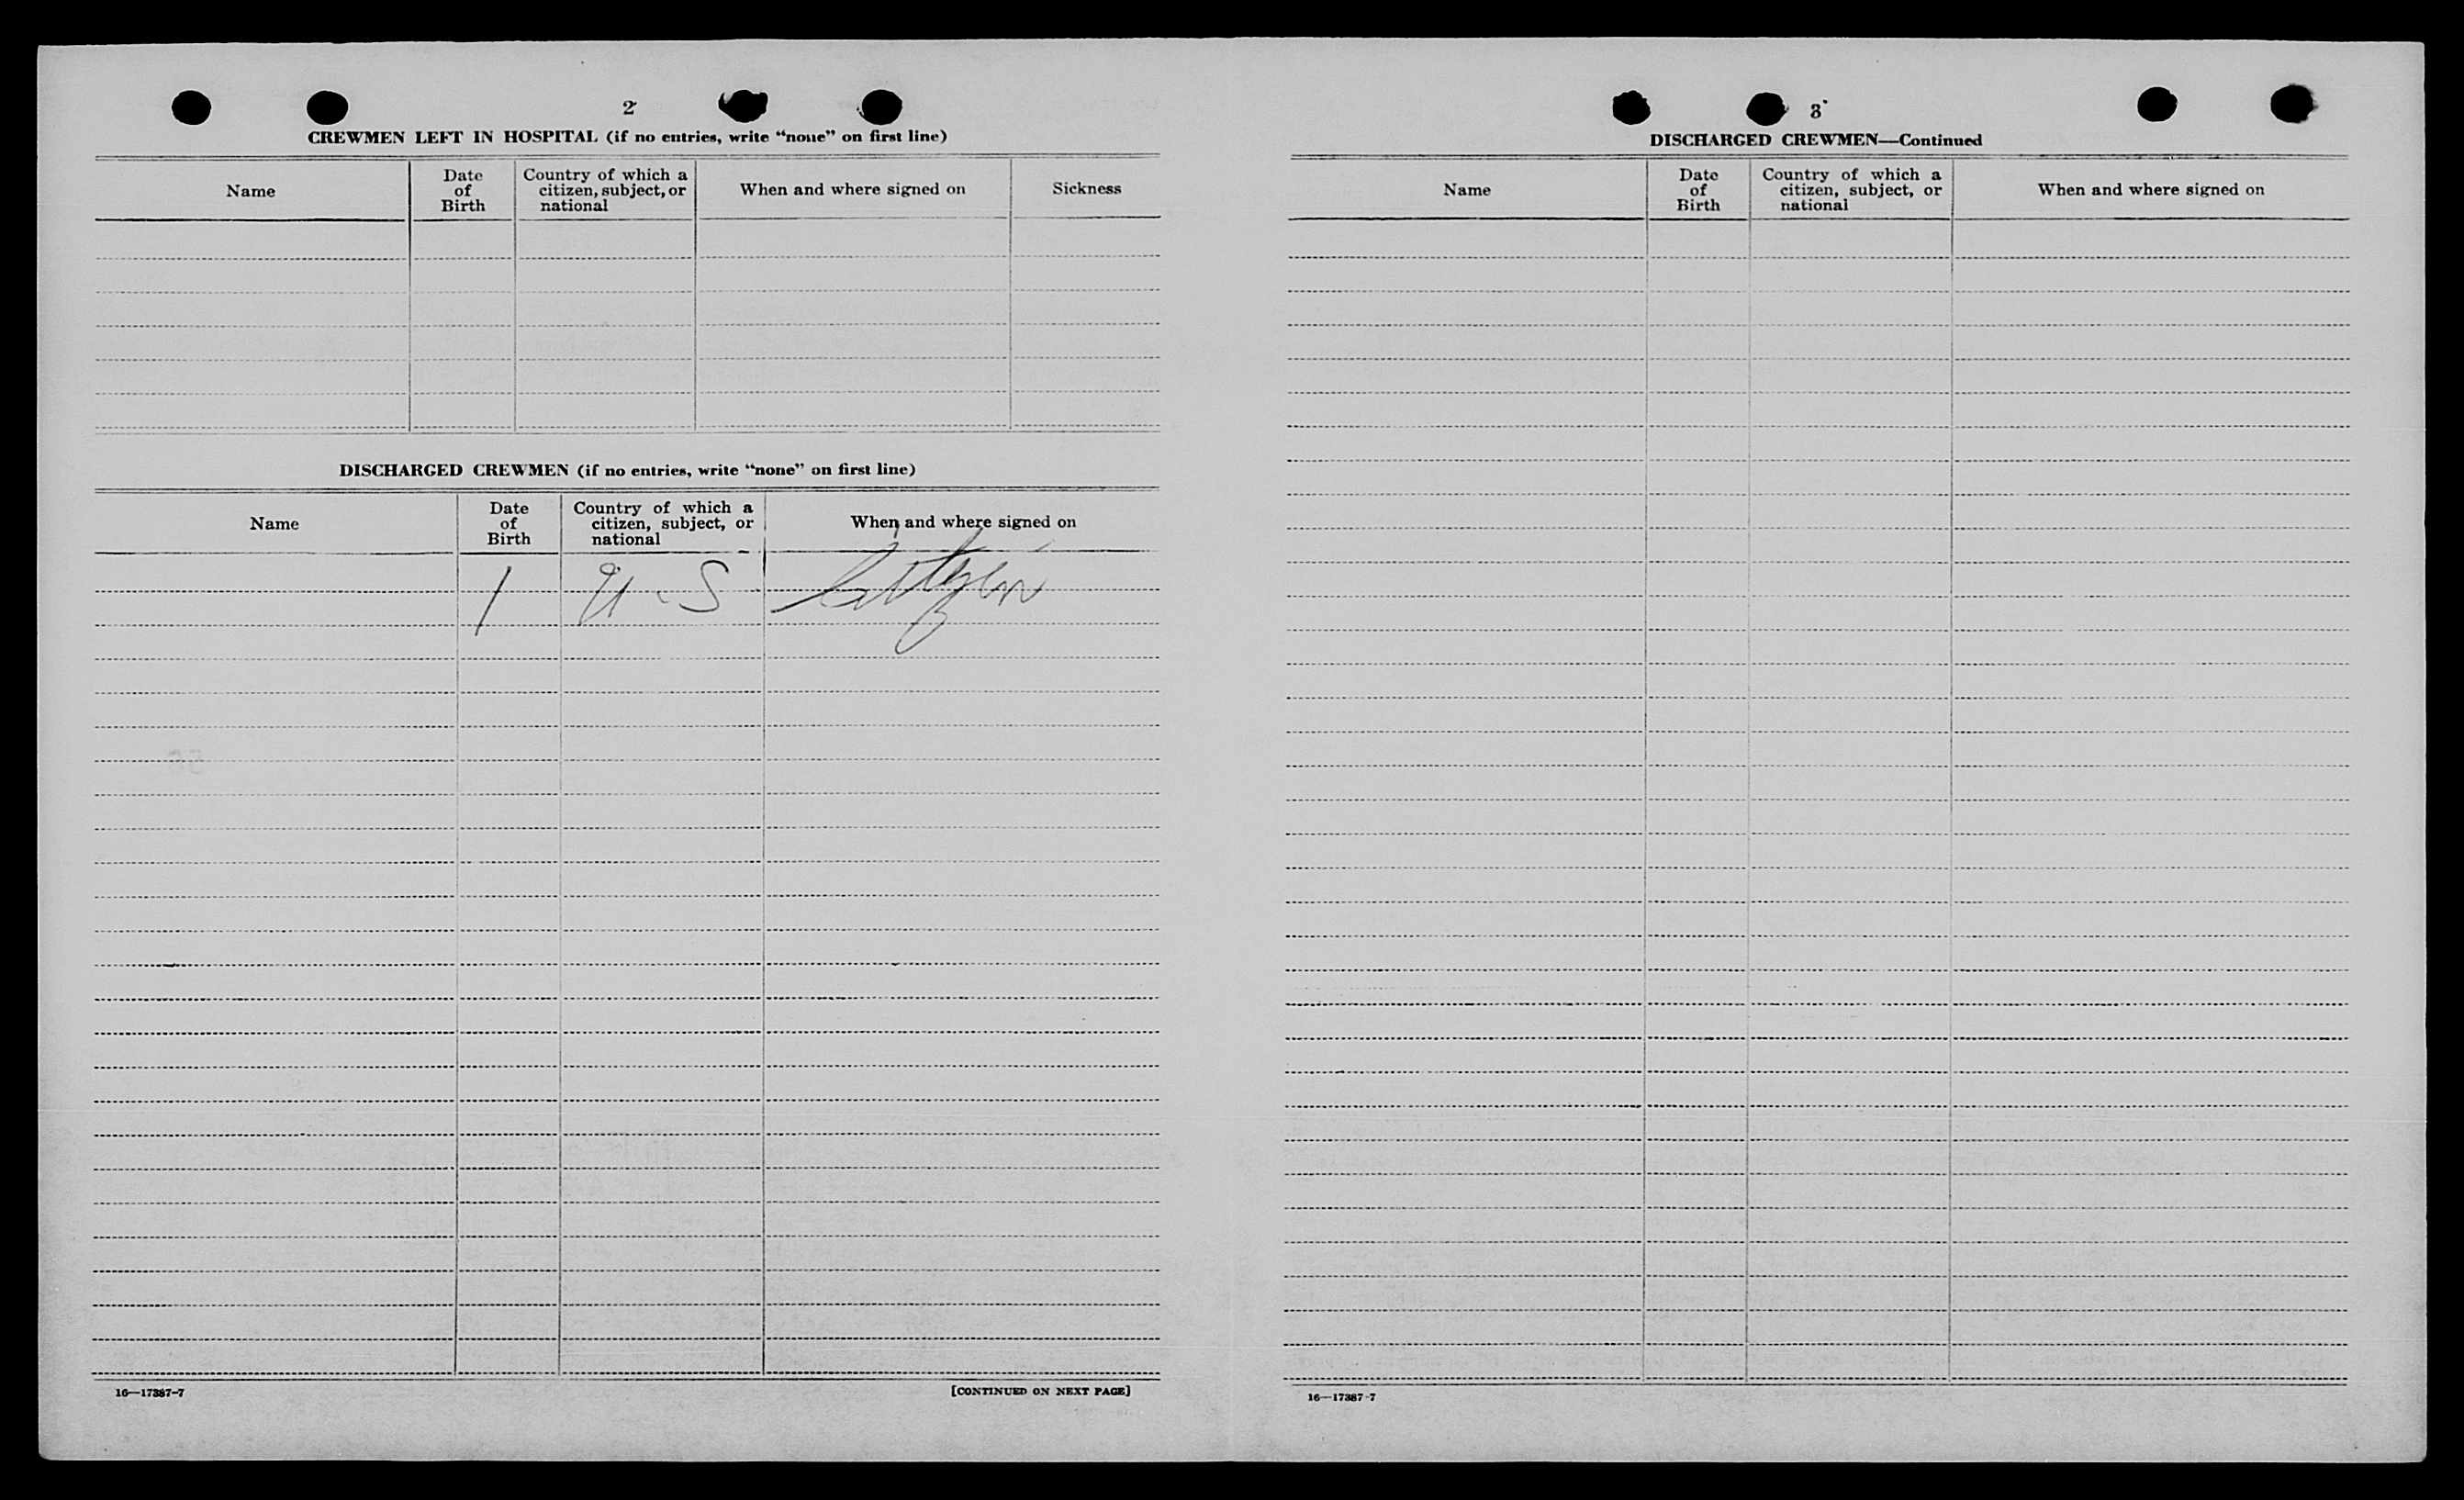 2
CREWMEN LEFT IN HOSPITAL (if no entries, write “none” on first line)
Name
Date of Birth
Country of which a citizen, subject, or national
When and where signed on
Sickness
DISCHARGED CREWMEN (if no entries, write “none” on first line)
Name
Date of Birth
Country of which a citizen, subject, or national
When and where signed on
1 U.S Citizen
16—17387-7
[CONTINUED ON NEXT PAGE]
3
DISCHARGED CREWMEN—Continued
Name
Date of Birth
Country of which a citizen, subject, or national
When and where signed on
16—17387-7